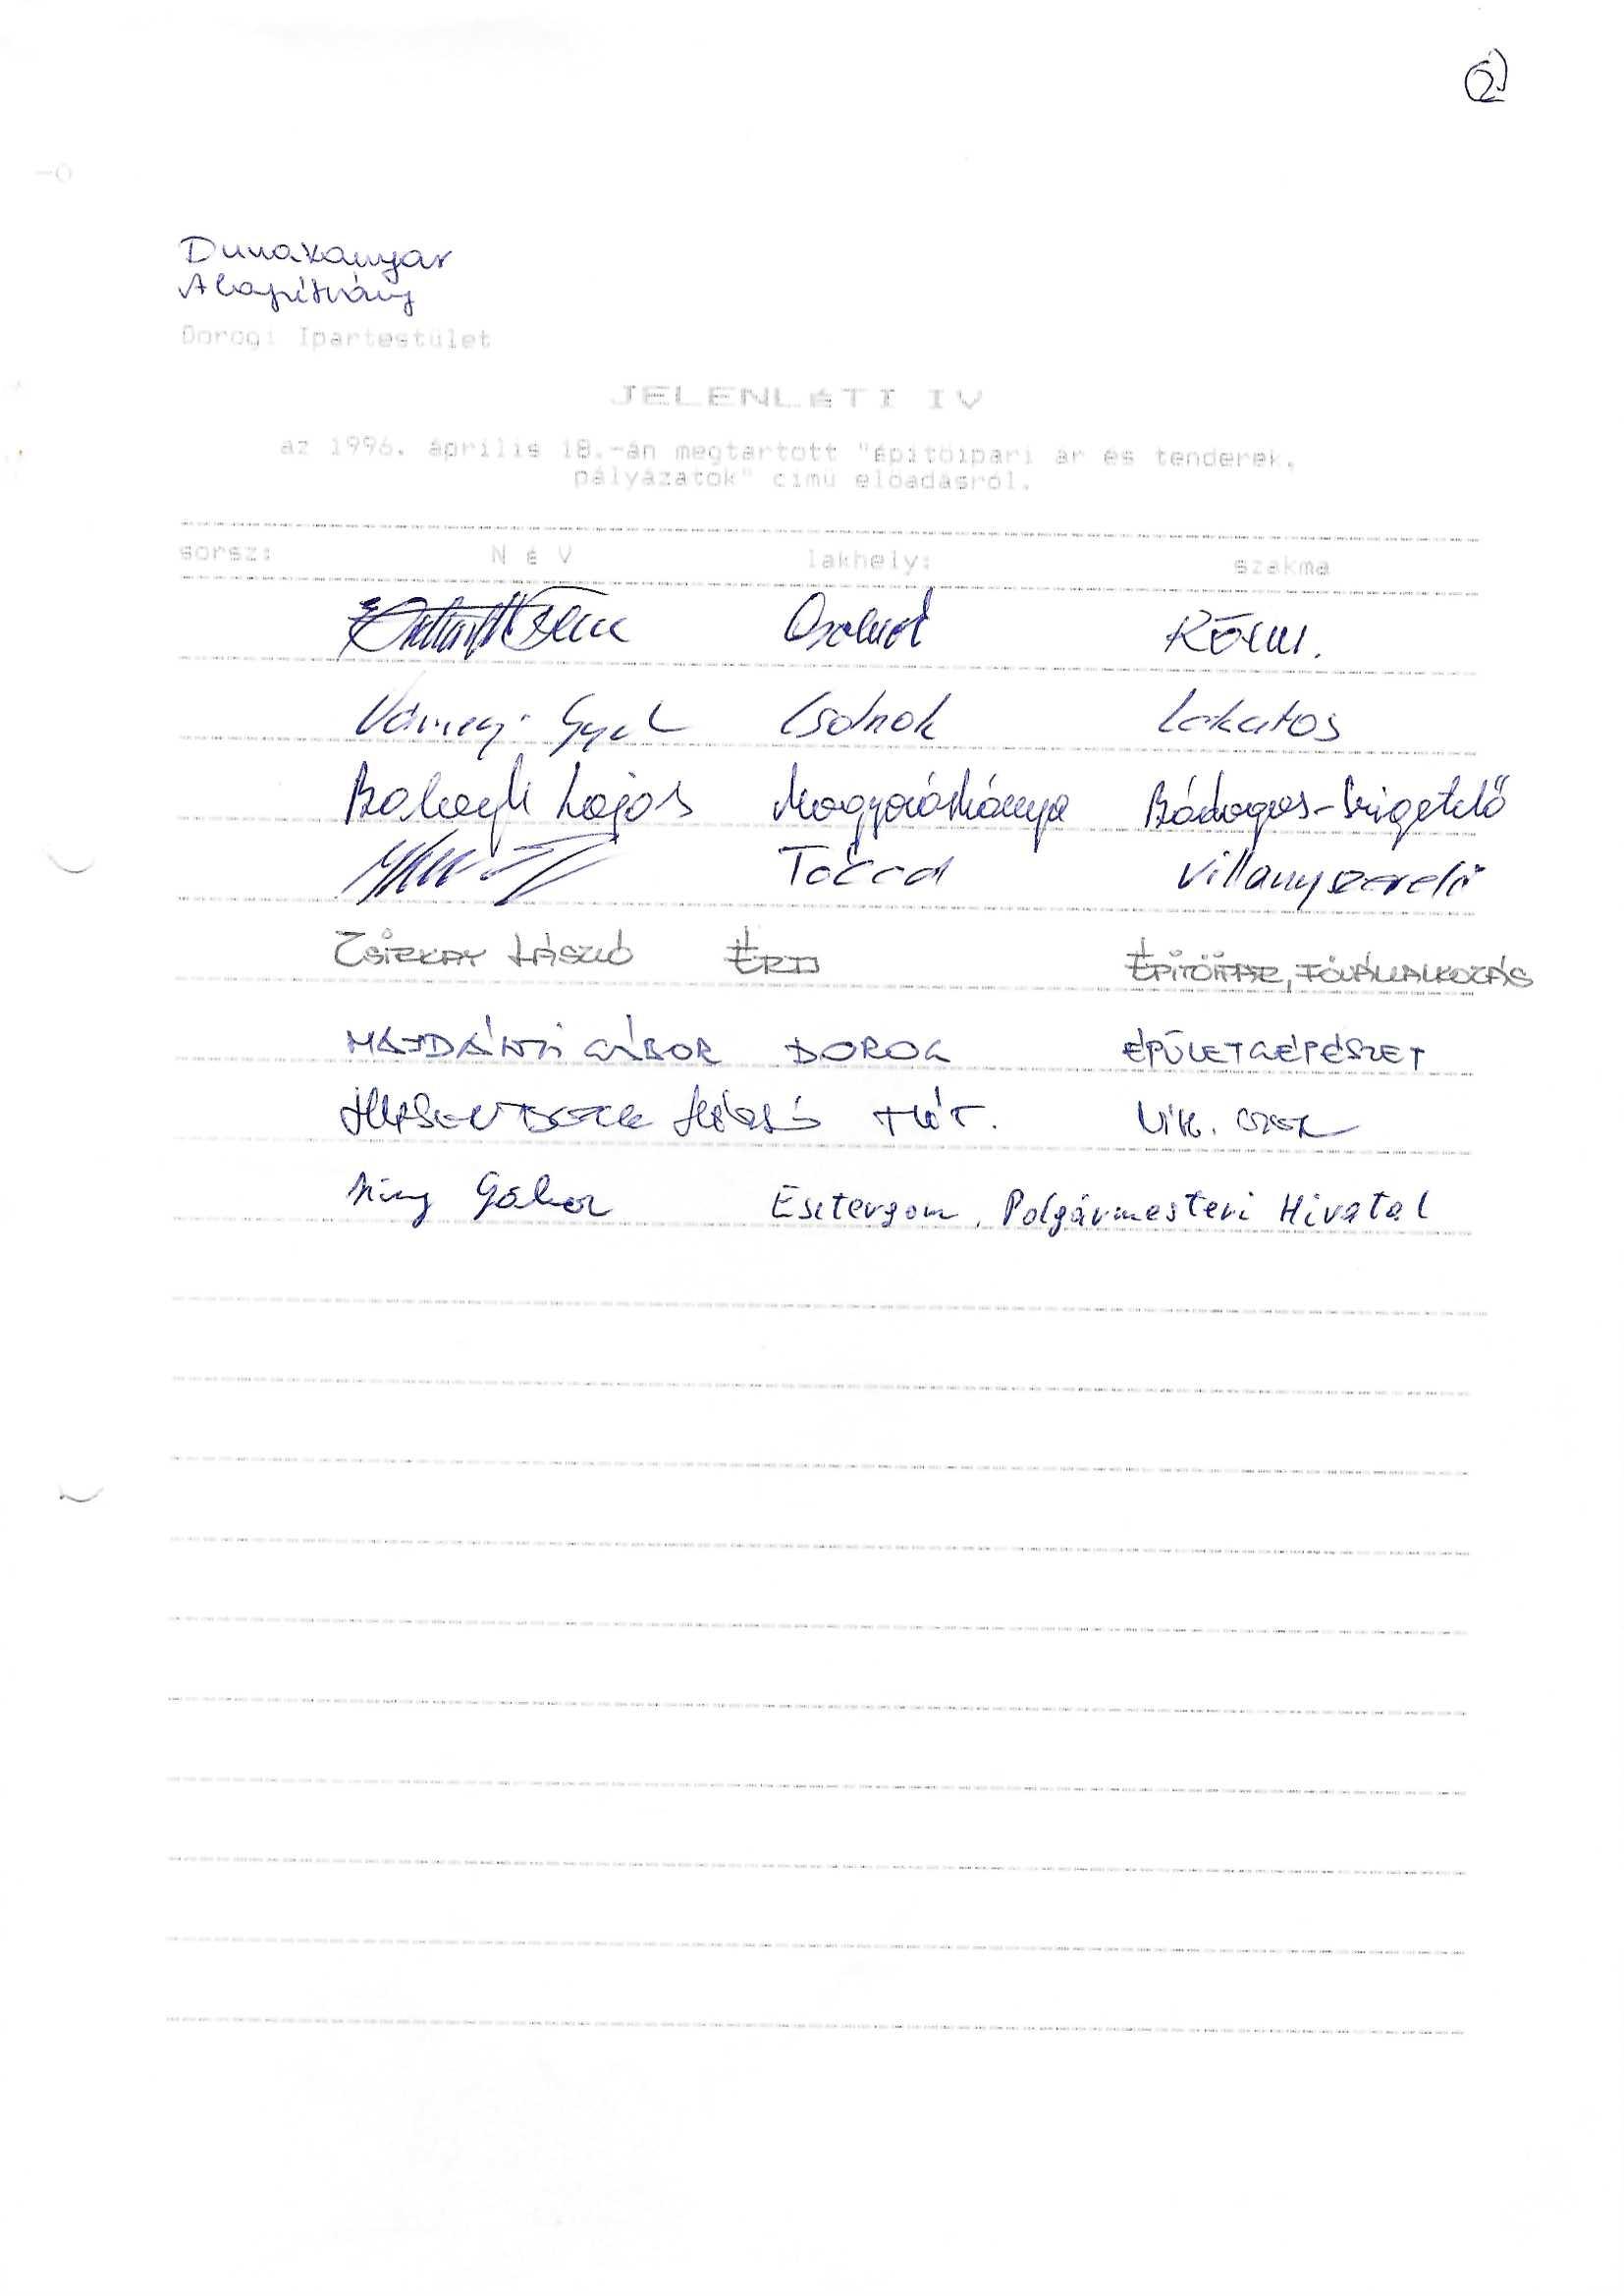 2.
Dunakanyar
Alapítvány
Dorogi Ipartestület
JELENLÉTI IV
az 1996. április 18.-án megtartott "Építőipari ár és tenderek,
pályázatok" cimü előadásról.
sorsz: N é V lakhely: szakma
Csolnok Kőműv.
Csolnok Lakatos
Lajos Mogyorósbánya Bádogos-Szigetelő
Tokod Villanyszerelő
Zsirkay László Érd Építőipar, Fővállalkozás
MAJDÁNYI GÁBOR DOROG ÉPÜLETGÉPÉSZET
Gábor Esztergom, Polgármesteri Hivatal